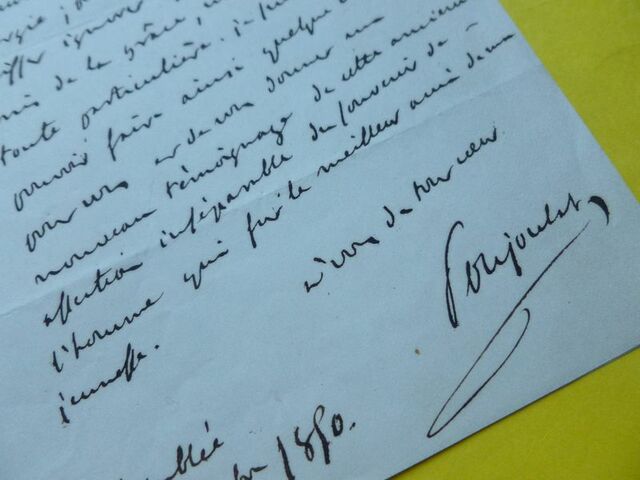 ignorer
de la grâce,
toute particulière. je
pouvoir faire ainsi quelque
pour vous et de vous donner un
nouveau témoignage de cette ancienne
affection inséparable du souvenir de
l'homme qui fut le meilleur ami de ma
jeunesse.
à vous de tout cœur
Poujoulat
1850.